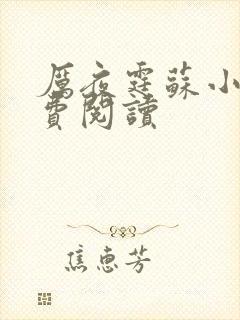 厲夜霆蘇小
費閱讀
焦惠芳